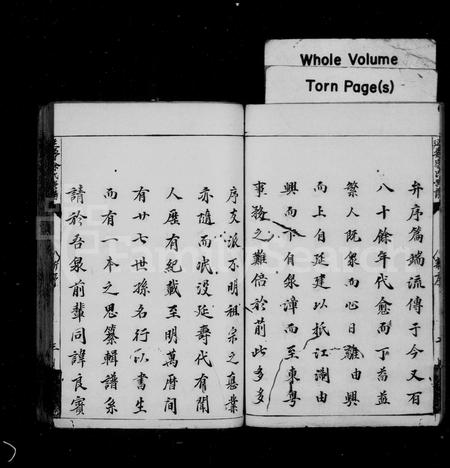 Whole Volume
Torn Page(s)
弁序篇端流傳于今又百
八十餘年代愈而丁益益
繁人既衆而心日雜由興
而上自延建以抵江淛由
興而下自泉漳而至東粤
事務之難倍於前此多多
序支派不明祖宗之恴業
亦隨而泯没延壽代有聞
人歷有紀載至明萬曆間
有廿七世孫名行以書生
而有一本之思纂輯譜系
請於吾泉前輩同諱良寳
FamilySearch